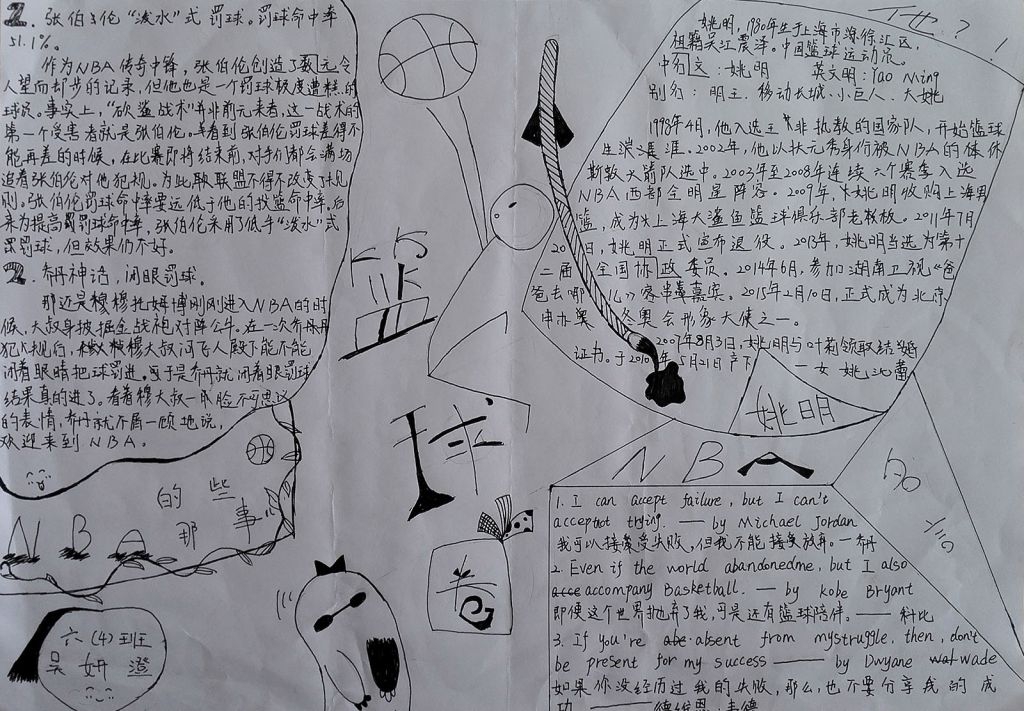 2. 张伯伦“泼水”式罚球。罚球命中率
51.1%。
作为NBA传奇中锋，张伯伦创造了数无令
人望而却步的记录，但他也是一个罚球极度遭糕的
球员。事实上，“砍鲨战术”并非前无来者，这一战术的
第一个受害者就是张伯伦。看到张伯伦罚球差得不
能再差的时候，在比赛即将结束前，对手们都会满场
追着张伯伦对他犯规。为此联盟不得不改变了规
则。张伯伦罚球命中率要远低于他的投篮命中率。后
来为提高罚球命中率，张伯伦采用了低手“泼水”式
罚球，但效果仍不好。
2. 乔丹神话，闭眼罚球。
那还是穆托姆博刚刚进入NBA的时
候，大叔身披掘金战袍对阵公牛。在一次乔丹
犯规后，穆大叔问飞人殿下能不能
闭着眼睛把球罚进。于是乔丹就闭着眼罚球
结果真的进了。看着穆大叔一脸不可思议
的表情，乔丹就不屑一顾地说，
欢迎来到NBA。
NBA的那些事
六(4)班
吴妍澄
篮
球
卷
姚明，1980年生于上海市徐汇区，
祖籍吴江震泽。中国篮球运动员。
中文名：姚明 英文明：Yao Ming
别名：明王、移动长城、小巨人、大姚
1998年4月，他入选王非执教的国家队，开始篮球
生涯。2002年，他以状元秀身份被NBA的休
斯敦火箭队选中。2003年至2008年连续六个赛季入选
NBA西部全明星阵容。2009年，姚明收购上海男
篮，成为上海大鲨鱼篮球俱乐部老板。2011年7月
20日，姚明正式宣布退役。2013年，姚明当选为第十
二届全国政协委员。2014年6月，参加湖南卫视《爸
爸去哪儿》客串嘉宾。2015年2月10日，正式成为北京
申办冬奥会形象大使之一。
2007年8月3日，姚明与叶莉领取结婚
证书。于2010年5月21日产下一女姚沁蕾
姚明
NBA
名言
1. I can accept failure, but I can't
accept not trying. — by Michael Jordan
我可以接受失败，但我不能接受放弃。—乔丹
2. Even if the world abandonedme, but I also
accompany Basketball. — by kobe Bryant
即使这个世界抛弃了我，可是还有篮球陪伴。— 科比
3. If you're absent from mystruggle, then, don't
be present for my success — by Dwyane wade
如果你没经历过我的失败，那么，也不要分享我的成
功 ——德维恩·韦德